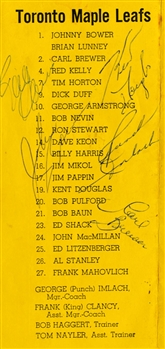 Toronto Maple Leafs
1. JOHNNY BOWER
BRIAN LUNNEY
2. CARL BREWER
4. RED KELLY
7. TIM HORTON
9. DICK DUFF
10. GEORGE ARMSTRONG
11. BOB NEVIN
12. RON STEWART
14. DAVE KEON
15. BILLY HARRIS
16. JIM MIKOL
17. JIM PAPPIN
19. KENT DOUGLAS
20. BOB PULFORD
21. BOB BAUN
23. ED SHACK
24. JOHN MacMILLAN
25. ED LITZENBERGER
26. AL STANLEY
27. FRANK MAHOVLICH
GEORGE (Punch) IMLACH,
Mgr.-Coach
FRANK (King) CLANCY,
Asst. Mgr.-Coach
BOB HAGGERT, Trainer
TOM NAYLER, Asst. Trainer
Carl
Brewer